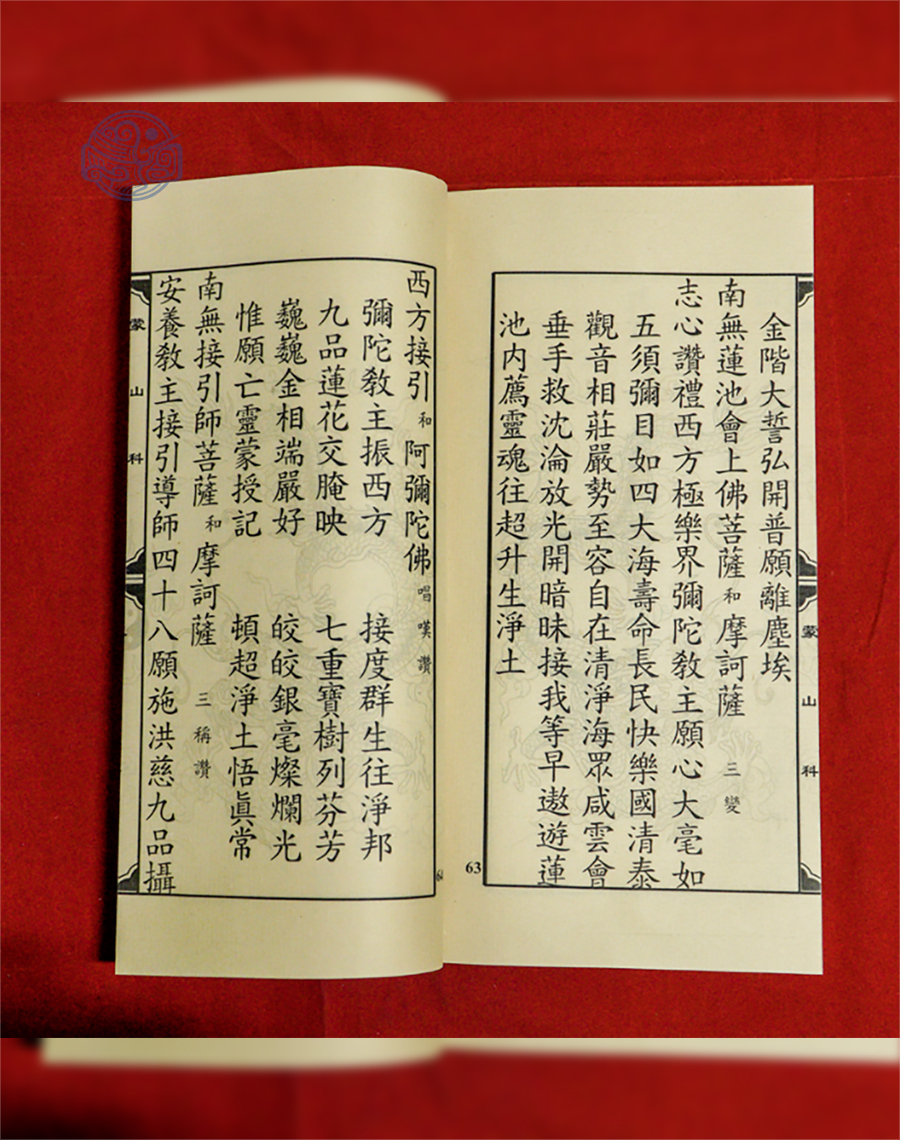 金階大誓弘開普願離塵埃
南無蓮池會上佛菩薩 和 摩訶薩 三變
志心讚禮西方極樂界彌陀教主願心大毫如
五須彌目如四大海壽命長民快樂國清泰
觀音相莊嚴勢至容自在清淨海眾咸雲會
垂手救沈淪放光開暗昧接我等早遨遊蓮
池內薦靈魂往超升生淨土
蒙山科
63
西方接引 和 阿彌陀佛 唱嘆讚
彌陀教主振西方 接度群生往淨邦
九品蓮花交腌映 七重寶樹列芬芳
巍巍金相端嚴好 皎皎銀毫燦爛光
惟願亡靈蒙授記 頓超淨土悟眞常
南無接引師菩薩 和 摩訶薩 三稱讚
安養教主接引導師四十八願施洪慈九品攝
蒙山科